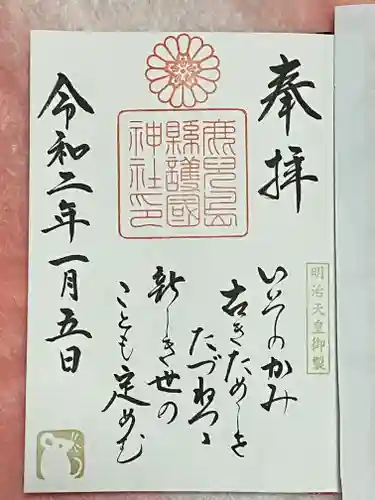 奉拝
明治天皇御製
鹿兒島
縣護國
神社印
いそのかみ
古きためしを
たづねつゝ
新しき世の
ことも定めむ
令和二年一月五日